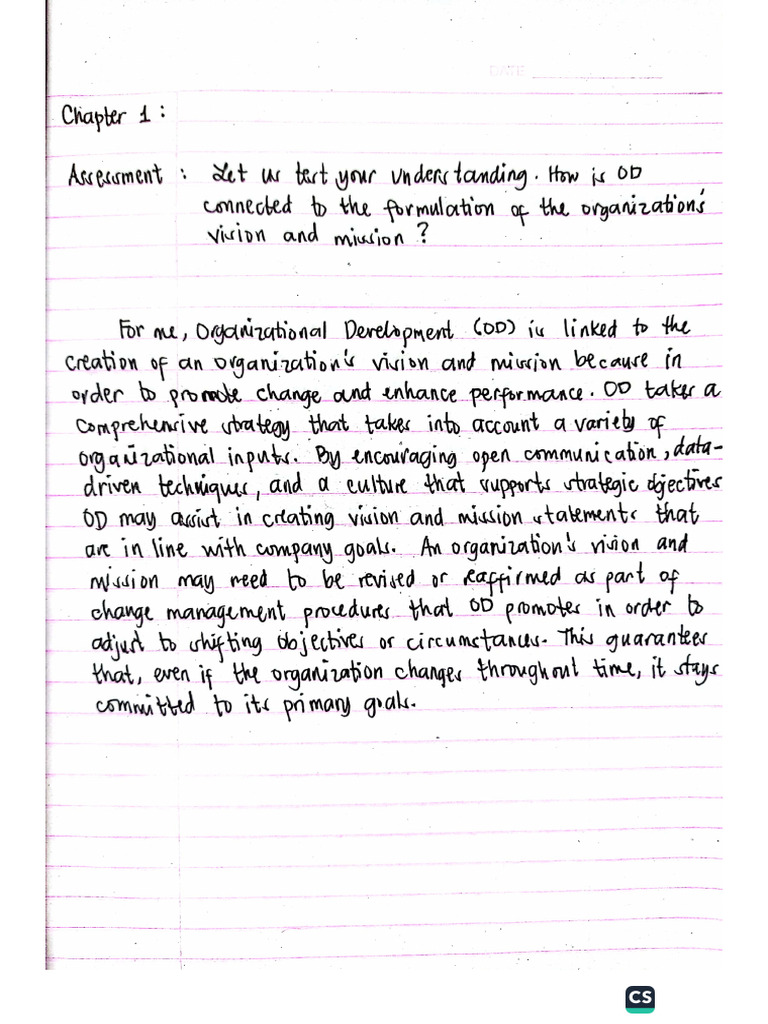 DATE
Chapter 1 :
Assessment : Let us test your understanding. How is OD
connected to the formulation of the organization's
vision and mission ?
For me, Organizational Development (OD) is linked to the
creation of an organization's vision and mission because in
order to promote change and enhance performance. OD takes a
comprehensive strategy that takes into account a variety of
organizational inputs. By encouraging open communication, data-
driven techniques, and a culture that supports strategic objectives
OD may assist in creating vision and mission statements that
are in line with company goals. An organization's vision and
mission may need to be revised or reaffirmed as part of
change management procedures that OD promotes in order to
adjust to shifting objectives or circumstances. This guarantees
that, even if the organization changes throughout time, it stays
committed to its primary goals.
CS